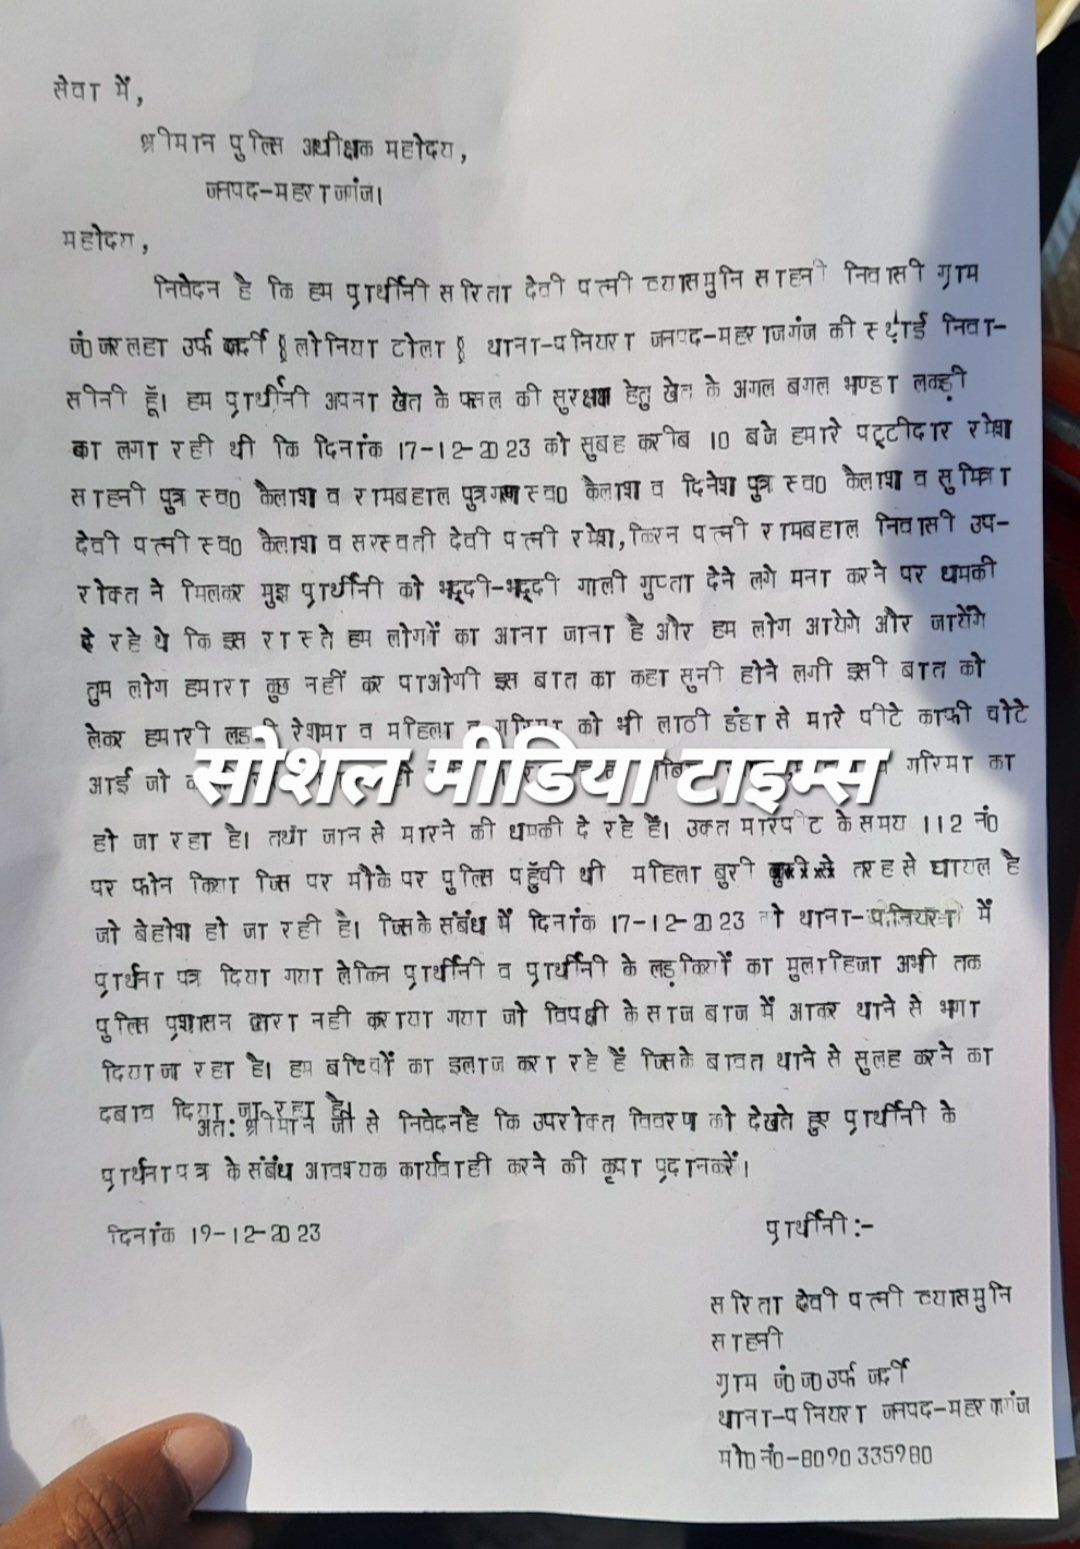 सेवा में,
श्रीमान पुलिस अधीक्षक महोदय,
जनपद-महराजगंज।
महोदय,
निवेदन है कि हम प्रार्थीनी सरिता देवी पत्नी व्यासमुनि साहनी निवासी ग्राम
जं0जरलहा उर्फ जर्दी लोनिया टोला थाना-पनियरा जनपद-महराजगंज की स्थाई निवा-
सीनी हूँ। हम प्रार्थीनी अपना खेत के फसल की सुरक्षा हेतु खेत के अगल बगल भण्डा लकड़ी
का लगा रही थी कि दिनांक 17-12-2023 को सुबह करीब 10 बजे हमारे पट्टीदार रमेश
साहनी पुत्र स्व0 कैलाश व रामबहाल पुत्रगण स्व0 कैलाश व दिनेश पुत्र स्व0 कैलाश व सुमित्रा
देवी पत्नी स्व0 कैलाश व सरस्वती देवी पत्नी रमेश,किरन पत्नी रामबहाल निवासी उप-
रोक्त ने मिलकर मुझ प्रार्थीनी को भद्दी-भद्दी गाली गुप्ता देने लगे मना करने पर धमकी
दे रहे थे कि इस रास्ते हम लोगों का आना जाना है और हम लोग आयेगे और जायेंगे
तुम लोग हमारा कुछ नहीं कर पाओगी इस बात का कहा सुनी होने लगी इसी बात को
लेकर हमारी रेशमा व महिला को भी लाठी डंडा से मारे पीटे काफी चोटे
आई जो गरिमा का
सोशल मीडिया टाइम्स
हो जा रहा है। तथा जान से मारने की धमकी दे रहे हैं। उक्त मारपीट के समय 112 नं0
पर फोन किया जिस पर मौके पर पुलिस पहुँची थी महिला बुरी तरह से घायल है
जो बेहोश हो जा रही है। जिसके संबंध में दिनांक 17-12-2023 को थाना-पनियरा में
प्रार्थना पत्र दिया गया लेकिन प्रार्थीनी व प्रार्थीनी के लड़कियों का मुलाहिजा अभी तक
पुलिस प्रशासन द्वारा नही कराया गया जो विपक्षी के साज बाज में आकर थाने से भगा
दिया जा रहा है। हम बच्चियों का इलाज करा रहे हैं जिसके बावत थाने से सुलह करने का
दबाव दिया जा रहा है।
अतः श्रीमान जी से निवेदनहै कि उपरोक्त विवरण को देखते हुए प्रार्थीनी के
प्रार्थनापत्र के संबंध आवश्यक कार्यवाही करने की कृपा प्रदानकरें।
दिनांक 19-12-2023
प्रार्थीनी:-
सरिता देवी पत्नी व्यासमुनि
साहनी
ग्राम जं0ज0उर्फ जर्दी
थाना-पनियरा जनपद-महराजगंज
मो0नं0-8090335980